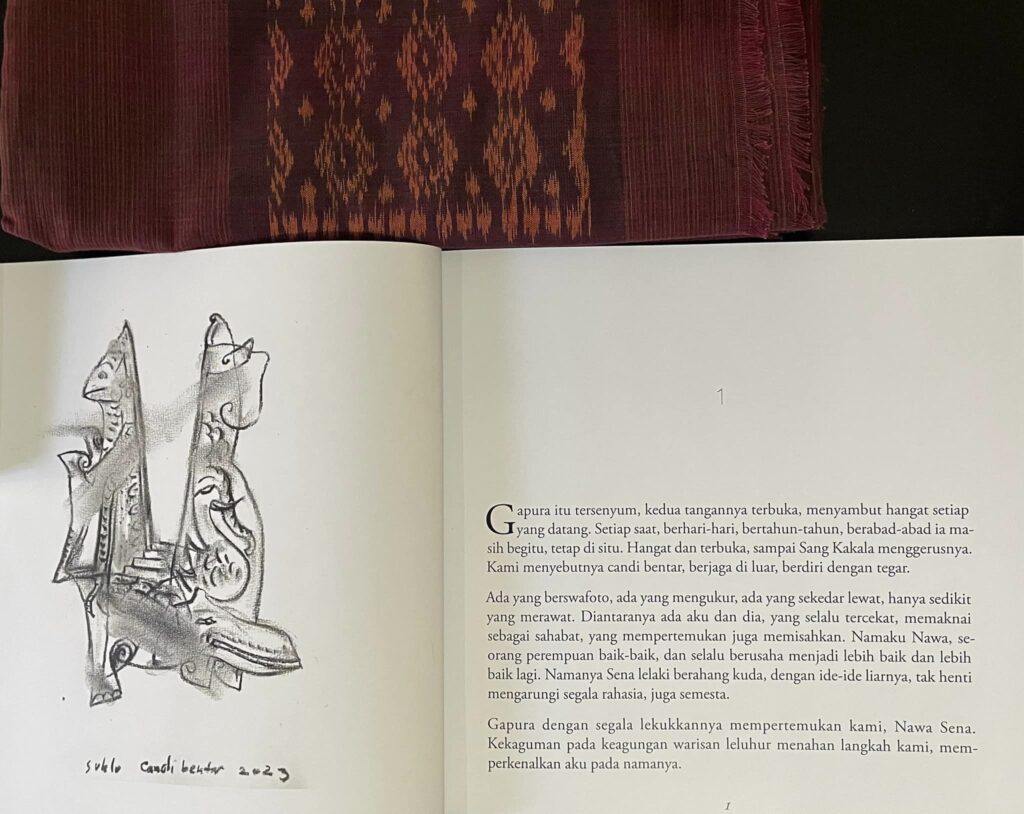 suklu Candi bentar 2023
1
Gapura itu tersenyum, kedua tangannya terbuka, menyambut hangat setiap
yang datang. Setiap saat, berhari-hari, bertahun-tahun, berabad-abad ia ma-
sih begitu, tetap di situ. Hangat dan terbuka, sampai Sang Kakala menggerusnya.
Kami menyebutnya candi bentar, berjaga di luar, berdiri dengan tegar.
Ada yang berswafoto, ada yang mengukur, ada yang sekedar lewat, hanya sedikit
yang merawat. Diantaranya ada aku dan dia, yang selalu tercekat, memaknai
sebagai sahabat, yang mempertemukan juga memisahkan. Namaku Nawa, se-
orang perempuan baik-baik, dan selalu berusaha menjadi lebih baik dan lebih
baik lagi. Namanya Sena lelaki berahang kuda, dengan ide-ide liarnya, tak henti
mengarungi segala rahasia, juga semesta.
Gapura dengan segala lekukkannya mempertemukan kami, Nawa Sena.
Kekaguman pada keagungan warisan leluhur menahan langkah kami, mem-
perkenalkan aku pada namanya.
1